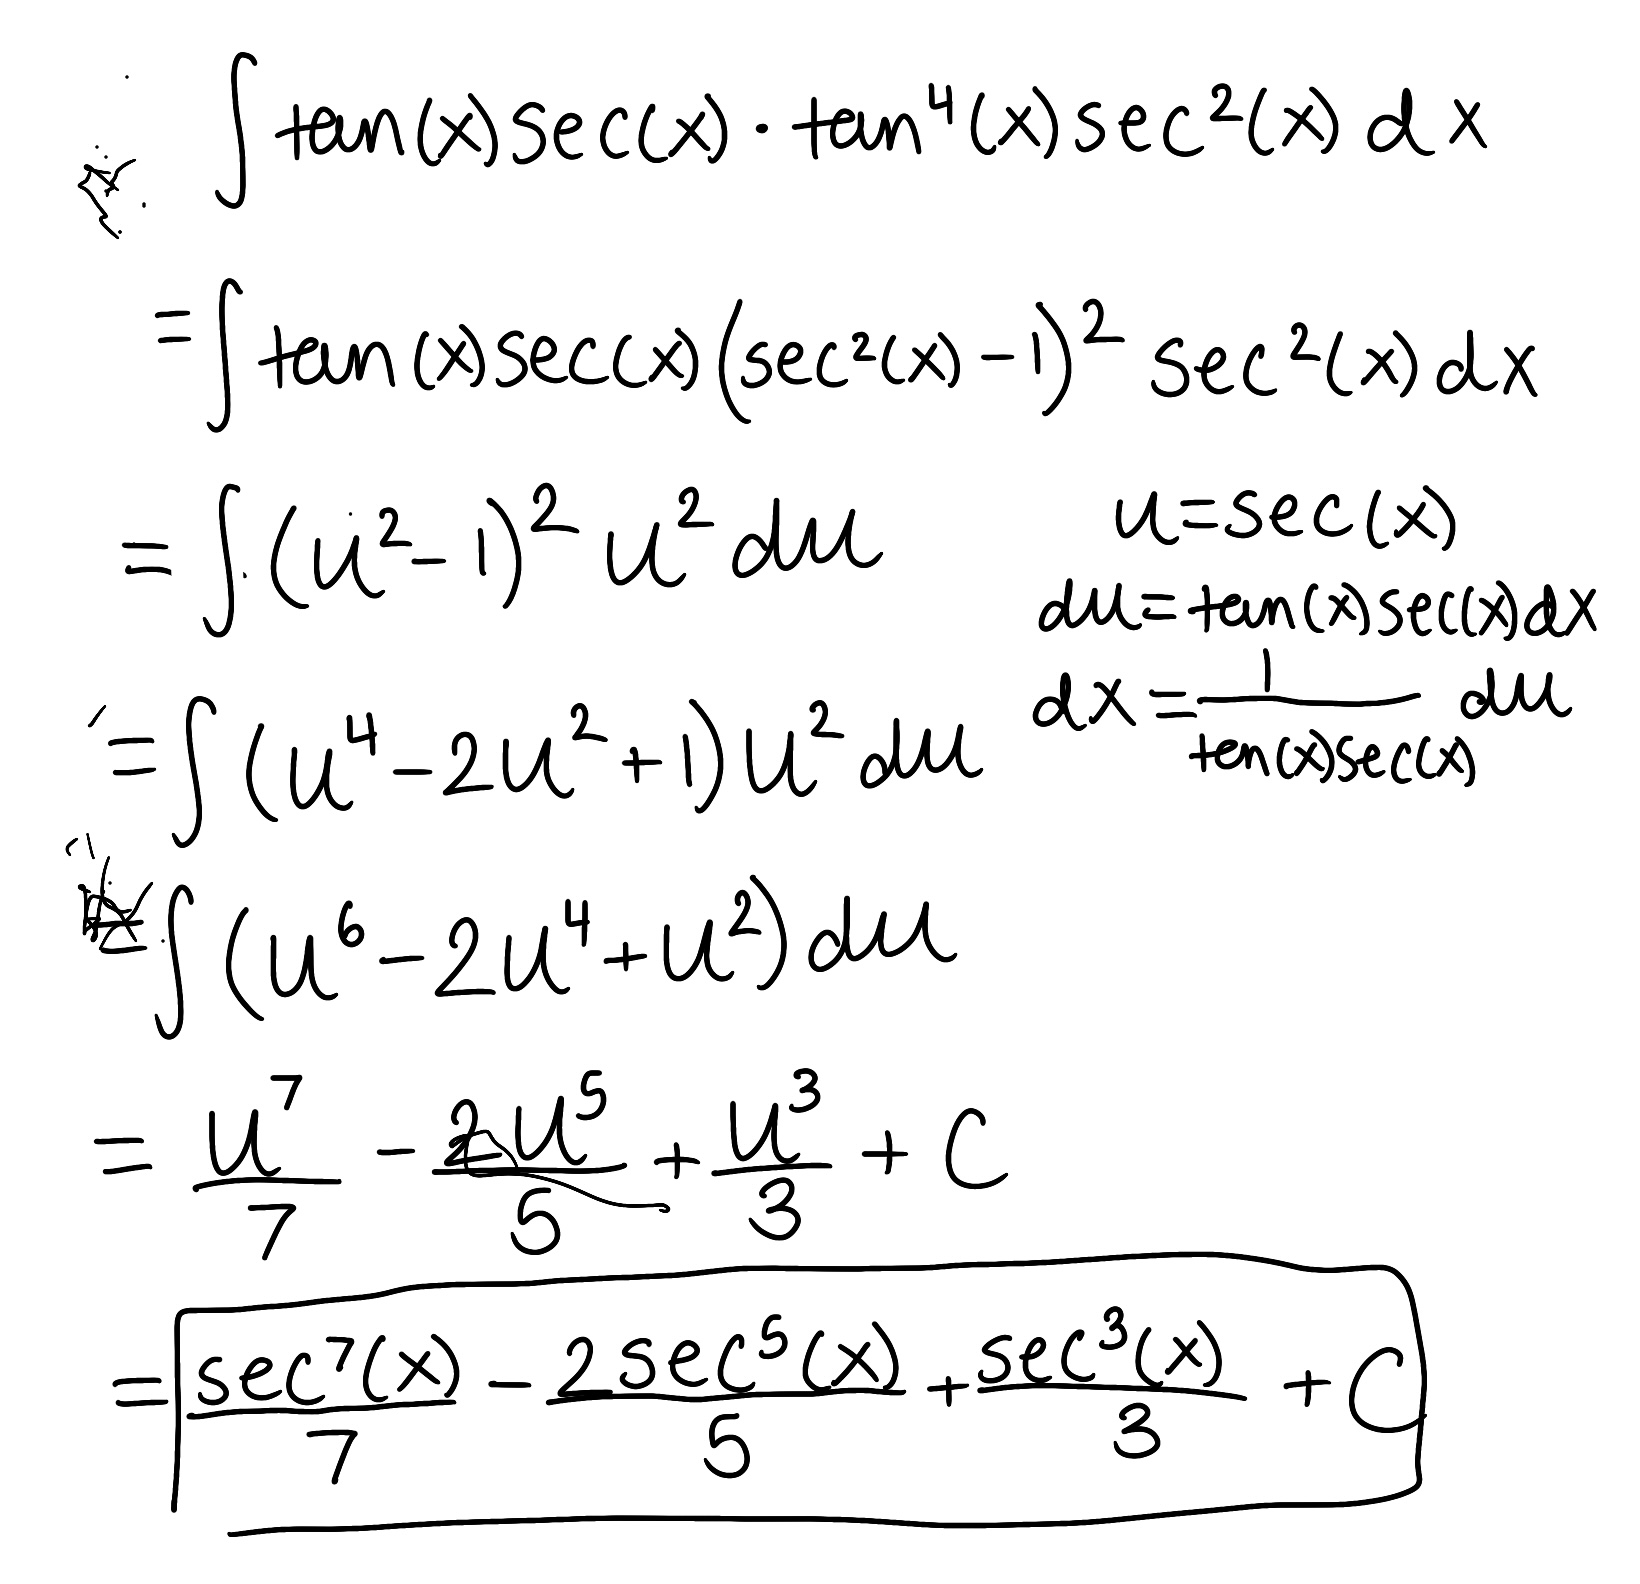 ∫ tan(x) sec(x) · tan⁴(x) sec²(x) dx
= ∫ tan(x) sec(x) (sec²(x) - 1)² sec²(x) dx
= ∫ (u² - 1)² u² du
u = sec(x)
du = tan(x) sec(x) dx
dx = 1/(tan(x) sec(x)) du
= ∫ (u⁴ - 2u² + 1) u² du
= ∫ (u⁶ - 2u⁴ + u²) du
= u⁷/7 - 2u⁵/5 + u³/3 + C
= sec⁷(x)/7 - 2sec⁵(x)/5 + sec³(x)/3 + C